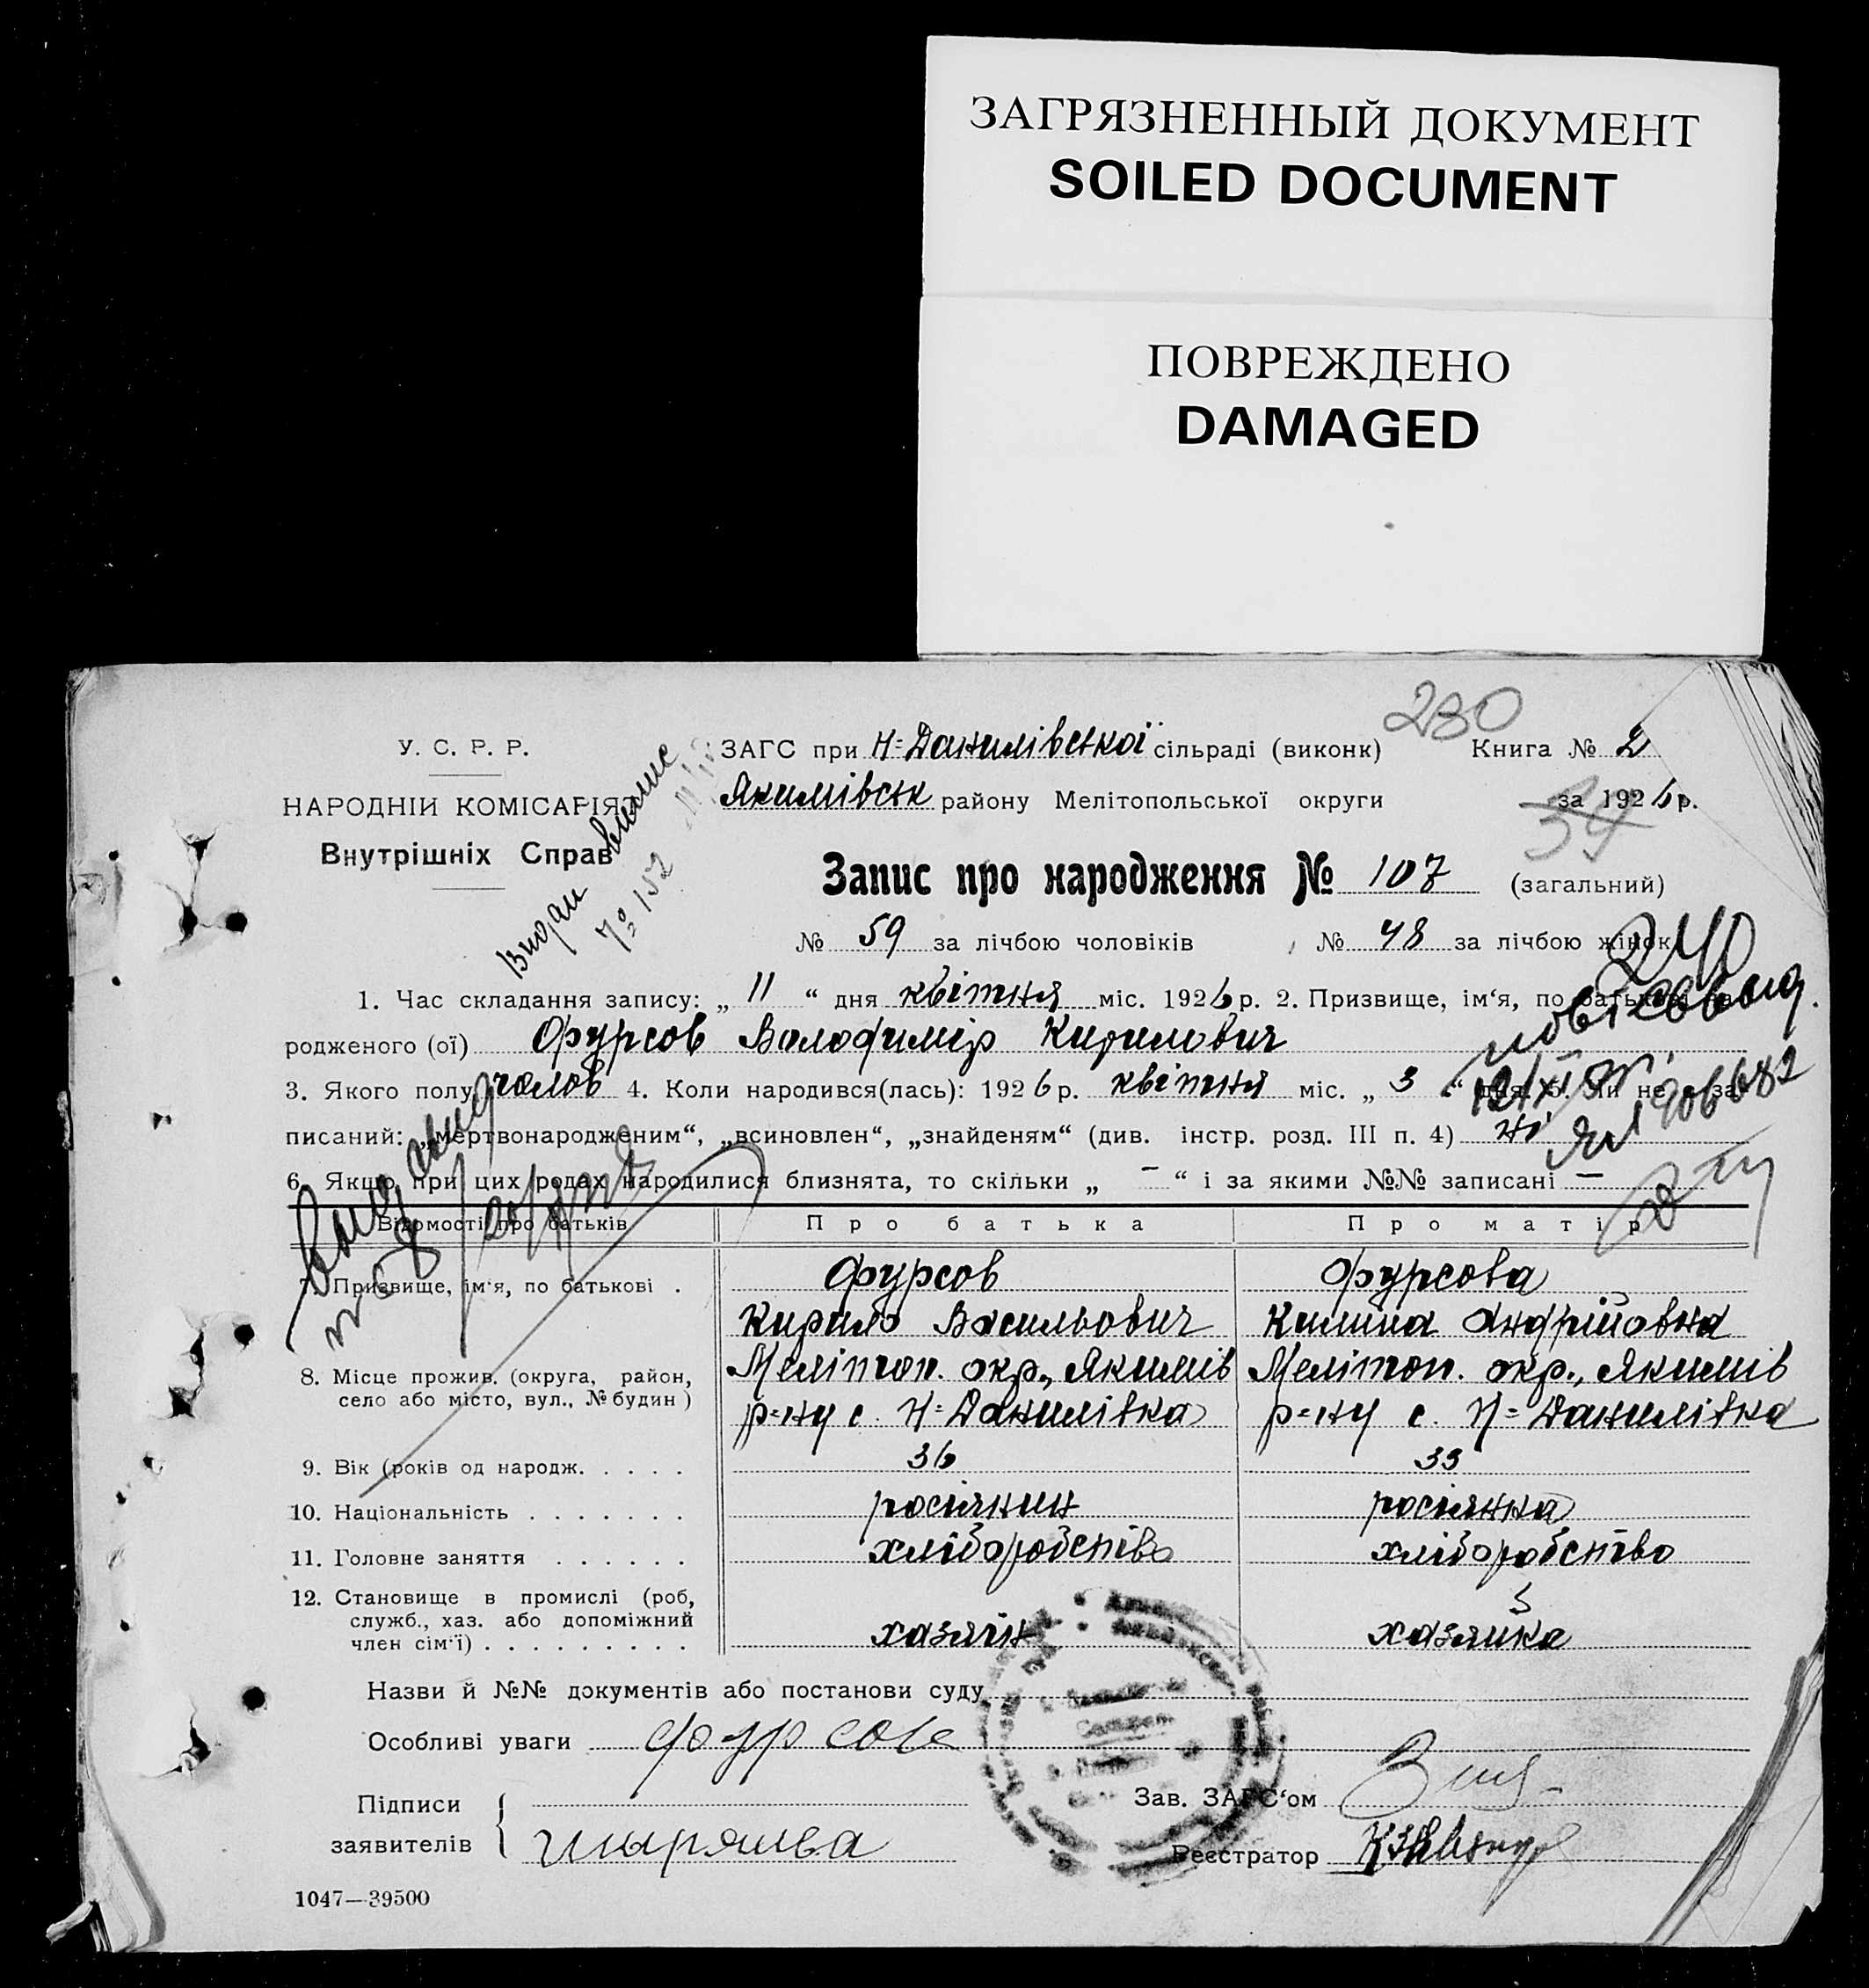 ЗАГРЯЗНЕННЫЙ ДОКУМЕНТ
SOILED DOCUMENT
ПОВРЕЖДЕНО
DAMAGED
280
У. С. Р. Р.
НАРОДНІЙ КОМІСАРІЯТ
Внутрішніх Справ
Видан выпис
№ 152
ЗАГС при Н-Данилівської сільраді (виконк) Книга № 2
Якимівськ району Мелітопольської округи за 1926 р.
39
Запис про народження № 107 (загальний)
№ 59 за лічбою чоловіків № 48 за лічбою жінок
240
1. Час складання запису: „ 11 “ дня квітня міс. 1926 р. 2. Призвище, ім‘я, по батькові на-
родженого (ої) Фурсов Володимір Кирилович
3. Якого полу чолов 4. Коли народився(лась): 1926 р. квітня міс. „ 3 “ дня. 5. Чи не є за-
писаний: „мертвонародженим“, „всиновлен“, „знайденям“ (див. інстр. розд. III п. 4) ні
6. Якщо при цих родах народилися близнята, то скільки „ — “ і за якими №№ записані —
Відомості про батьків Про батька Про матір
7. Призвище, ім‘я, по батькові . Фурсов Фурсова
Кирило Васильович Килина Андрійовна
8. Місце прожив. (округа, район, село або місто, вул., № будин) Меліпоп. окр., Якимів Меліпоп. окр., Якимів
р-ну с. Н-Данилівка р-ну с. Н-Данилівка
9. Вік (років од народж. . . . . 36 33
10. Національність . . . . . . . росіянин росіянка
11. Головне заняття . . . . . . хліборобство хліборобство
12. Становище в промислі (роб,
служб., хаз. або допоміжний
член сім‘ї) . . . . . . . . . хазяїн хазяйка
Назви й №№ документів або постанови суду
Особливі уваги фурсов
Підписи
заявителів
Зав. ЗАГС‘ом
Реєстратор
1047—39500